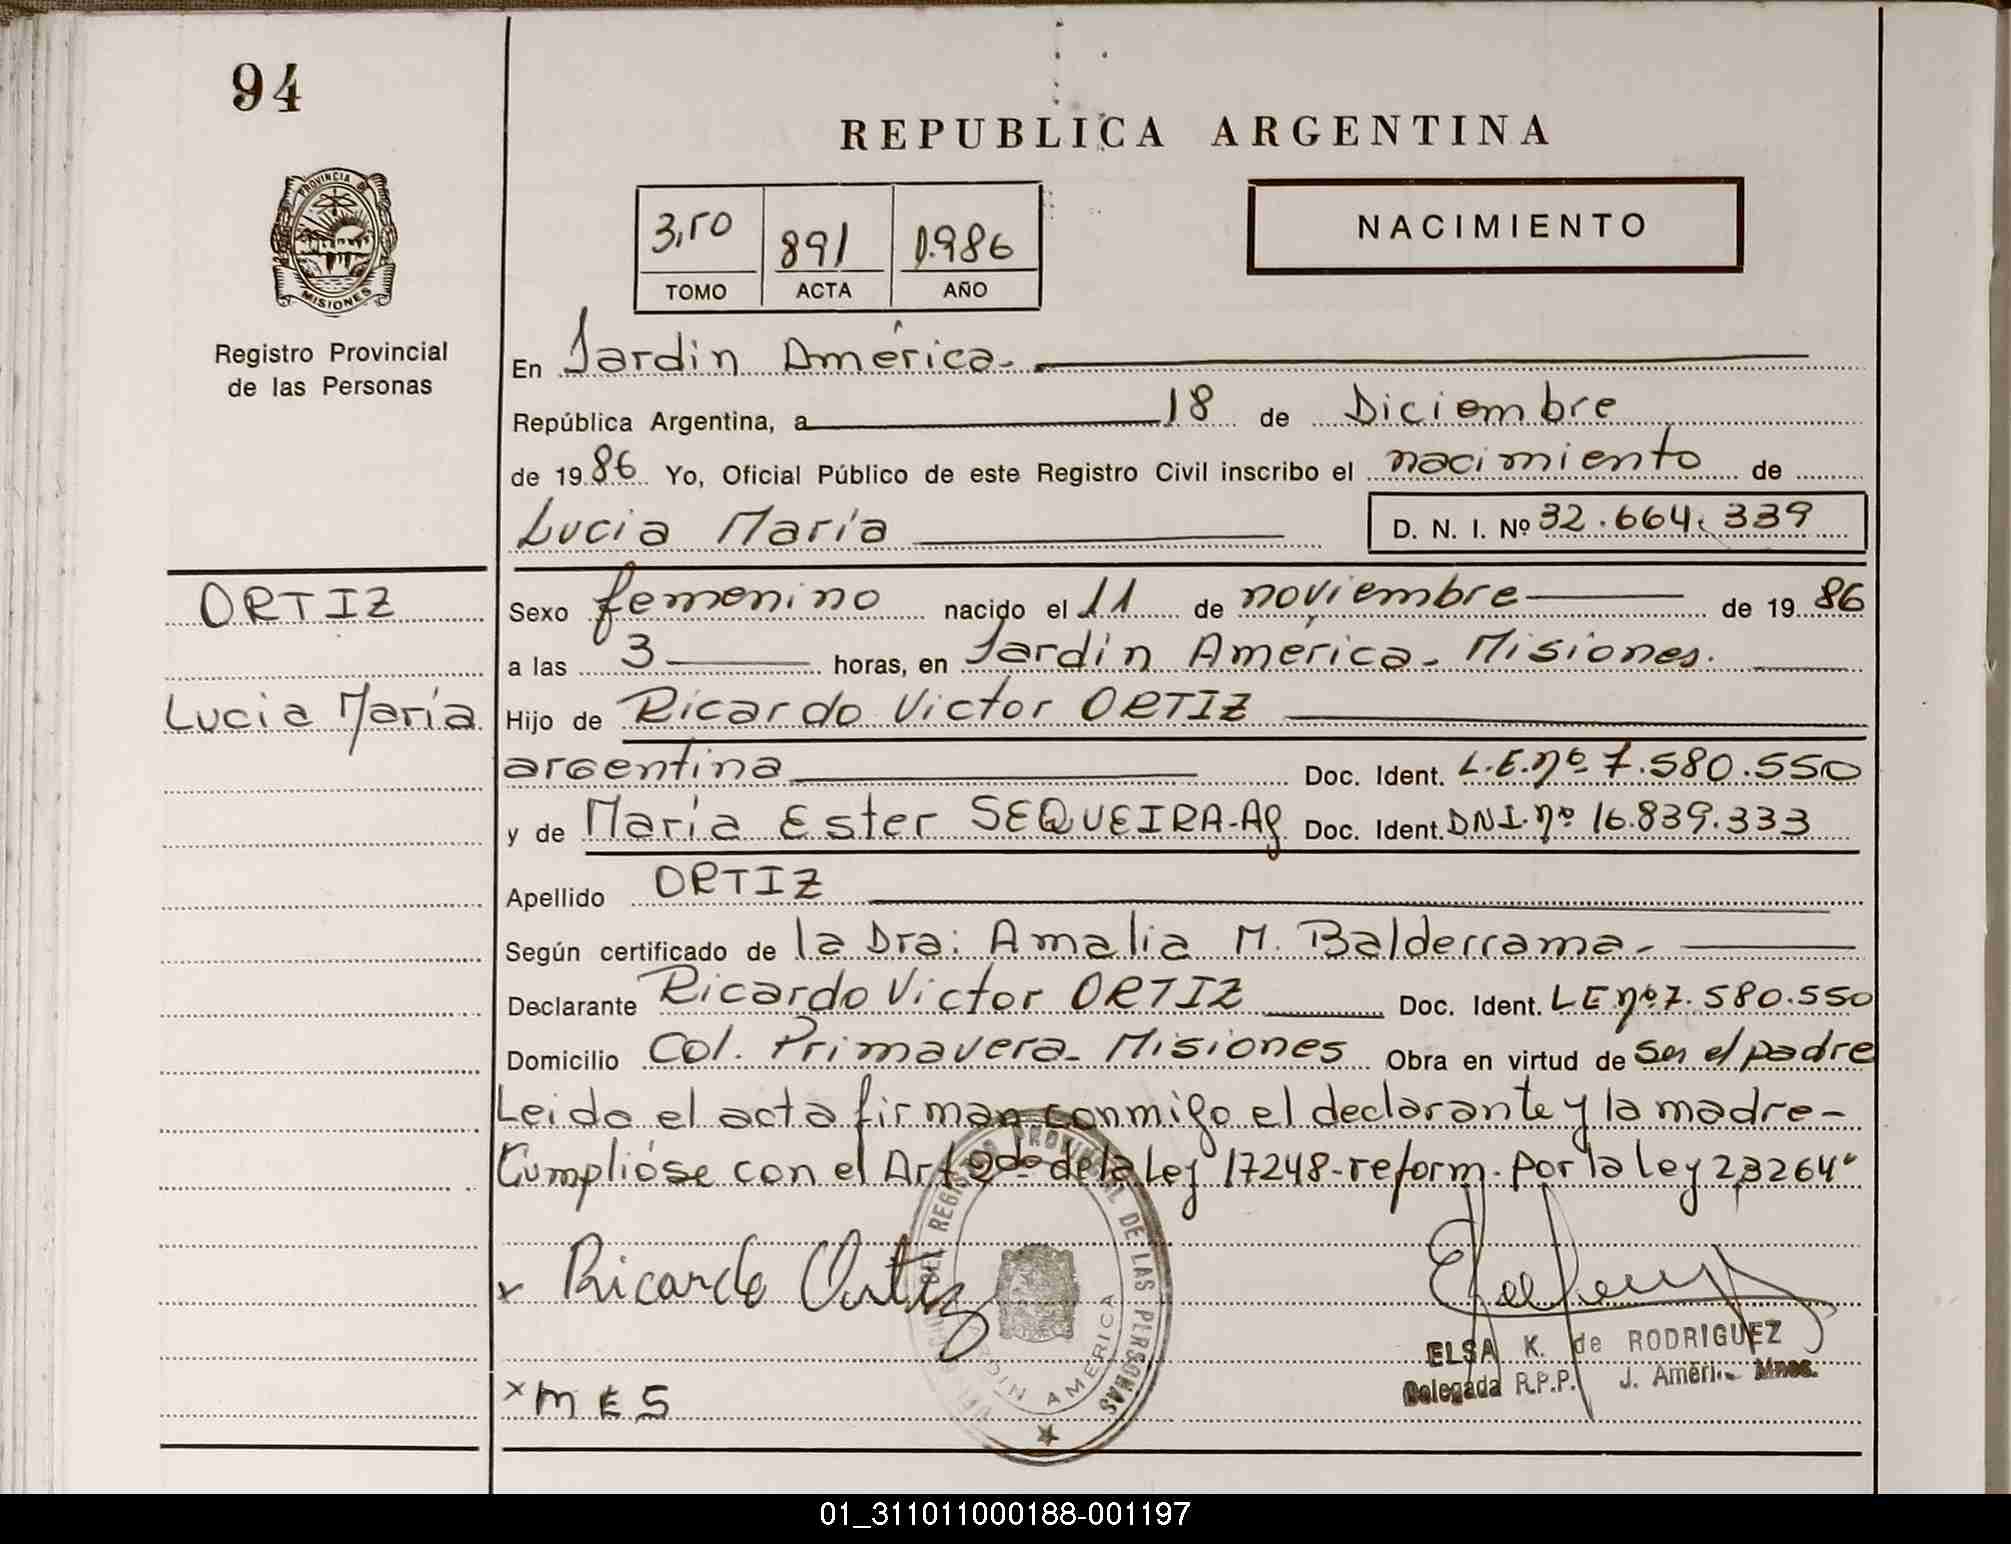 94
REPUBLICA ARGENTINA
PROVINCIA DE
MISIONES
Registro Provincial
de las Personas
3,50 891 1.986
TOMO ACTA AÑO
NACIMIENTO
En Jardin América.
República Argentina, a 18 de Diciembre
de 19 86 Yo, Oficial Público de este Registro Civil inscribo el nacimiento de
Lucia María D. N. I. Nº 32.664.339
ORTIZ
Lucia María
Sexo femenino nacido el 11 de noviembre de 19 86
a las 3 horas, en Jardin América. Misiones.
Hijo de Ricardo Victor ORTIZ
argentina Doc. Ident. L.E.nº 7.580.550
y de María Ester SEQUEIRA-Ag Doc. Ident. DNI.nº 16.839.333
Apellido ORTIZ
Según certificado de la Dra: Amalia M. Balderrama-
Declarante Ricardo Victor ORTIZ Doc. Ident. LE nº 7.580.550
Domicilio Col. Primavera- Misiones Obra en virtud de ser el padre
Leido el acta firman conmigo el declarante y la madre-
Cumplióse con el Art 2do de la Ley 17248-reform. por la ley 23264
Ricardo Ortiz
REGISTRO PROVINCIAL DE LAS PERSONAS
JARDIN AMERICA
ELSA K. de RODRIGUEZ
Delegada R.P.P. J. Améri Mnes.
x M E S
01_311011000188-001197